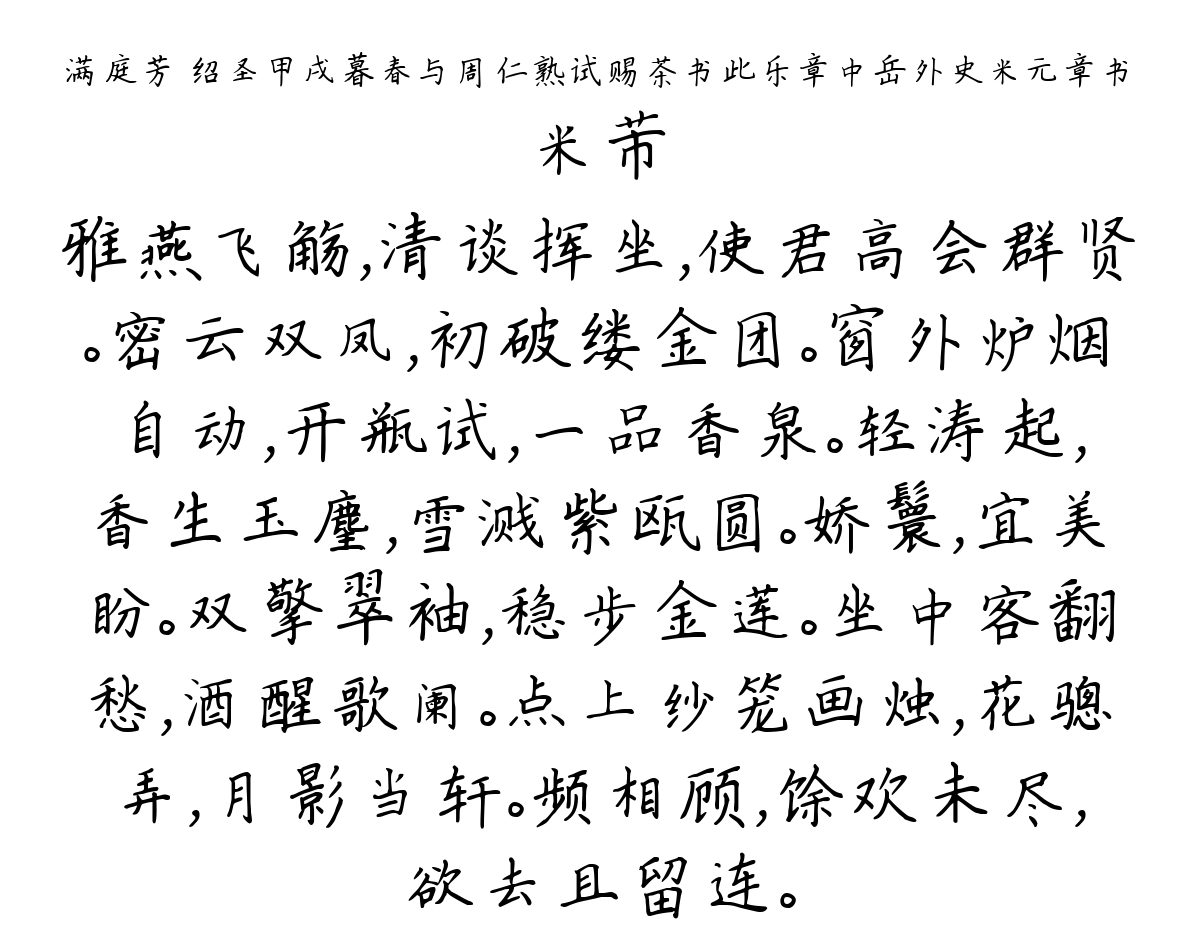 满庭芳 绍圣甲戌暮春与周仁熟试赐茶书此乐章中岳外史米元章书
米芾
雅燕飞觞,清谈挥坐,使君高会群贤
。密云双凤,初破缕金团。窗外炉烟
自动,开瓶试,一品香泉。轻涛起,
香生玉麈,雪溅紫瓯圆。娇鬟,宜美
盼。双擎翠袖,稳步金莲。坐中客翻
愁,酒醒歌阑。点上纱笼画烛,花骢
弄,月影当轩。频相顾,馀欢未尽,
欲去且留连。